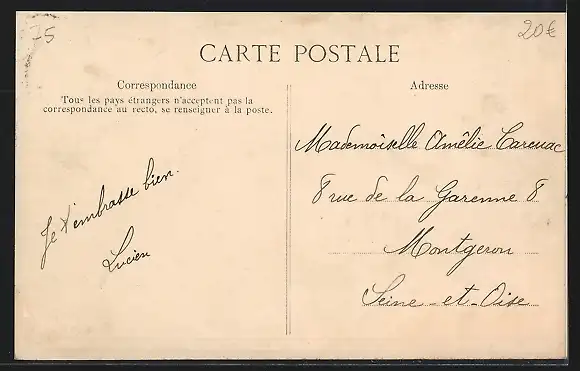 75
20€
CARTE POSTALE
Correspondance
Tous les pays étrangers n'acceptent pas la
correspondance au recto, se renseigner à la poste.
Je t'embrasse bien.
Lucien
Adresse
Mademoiselle Amélie Carenac
8 rue de la Garenne 8
Montgeron
Seine-et-Oise